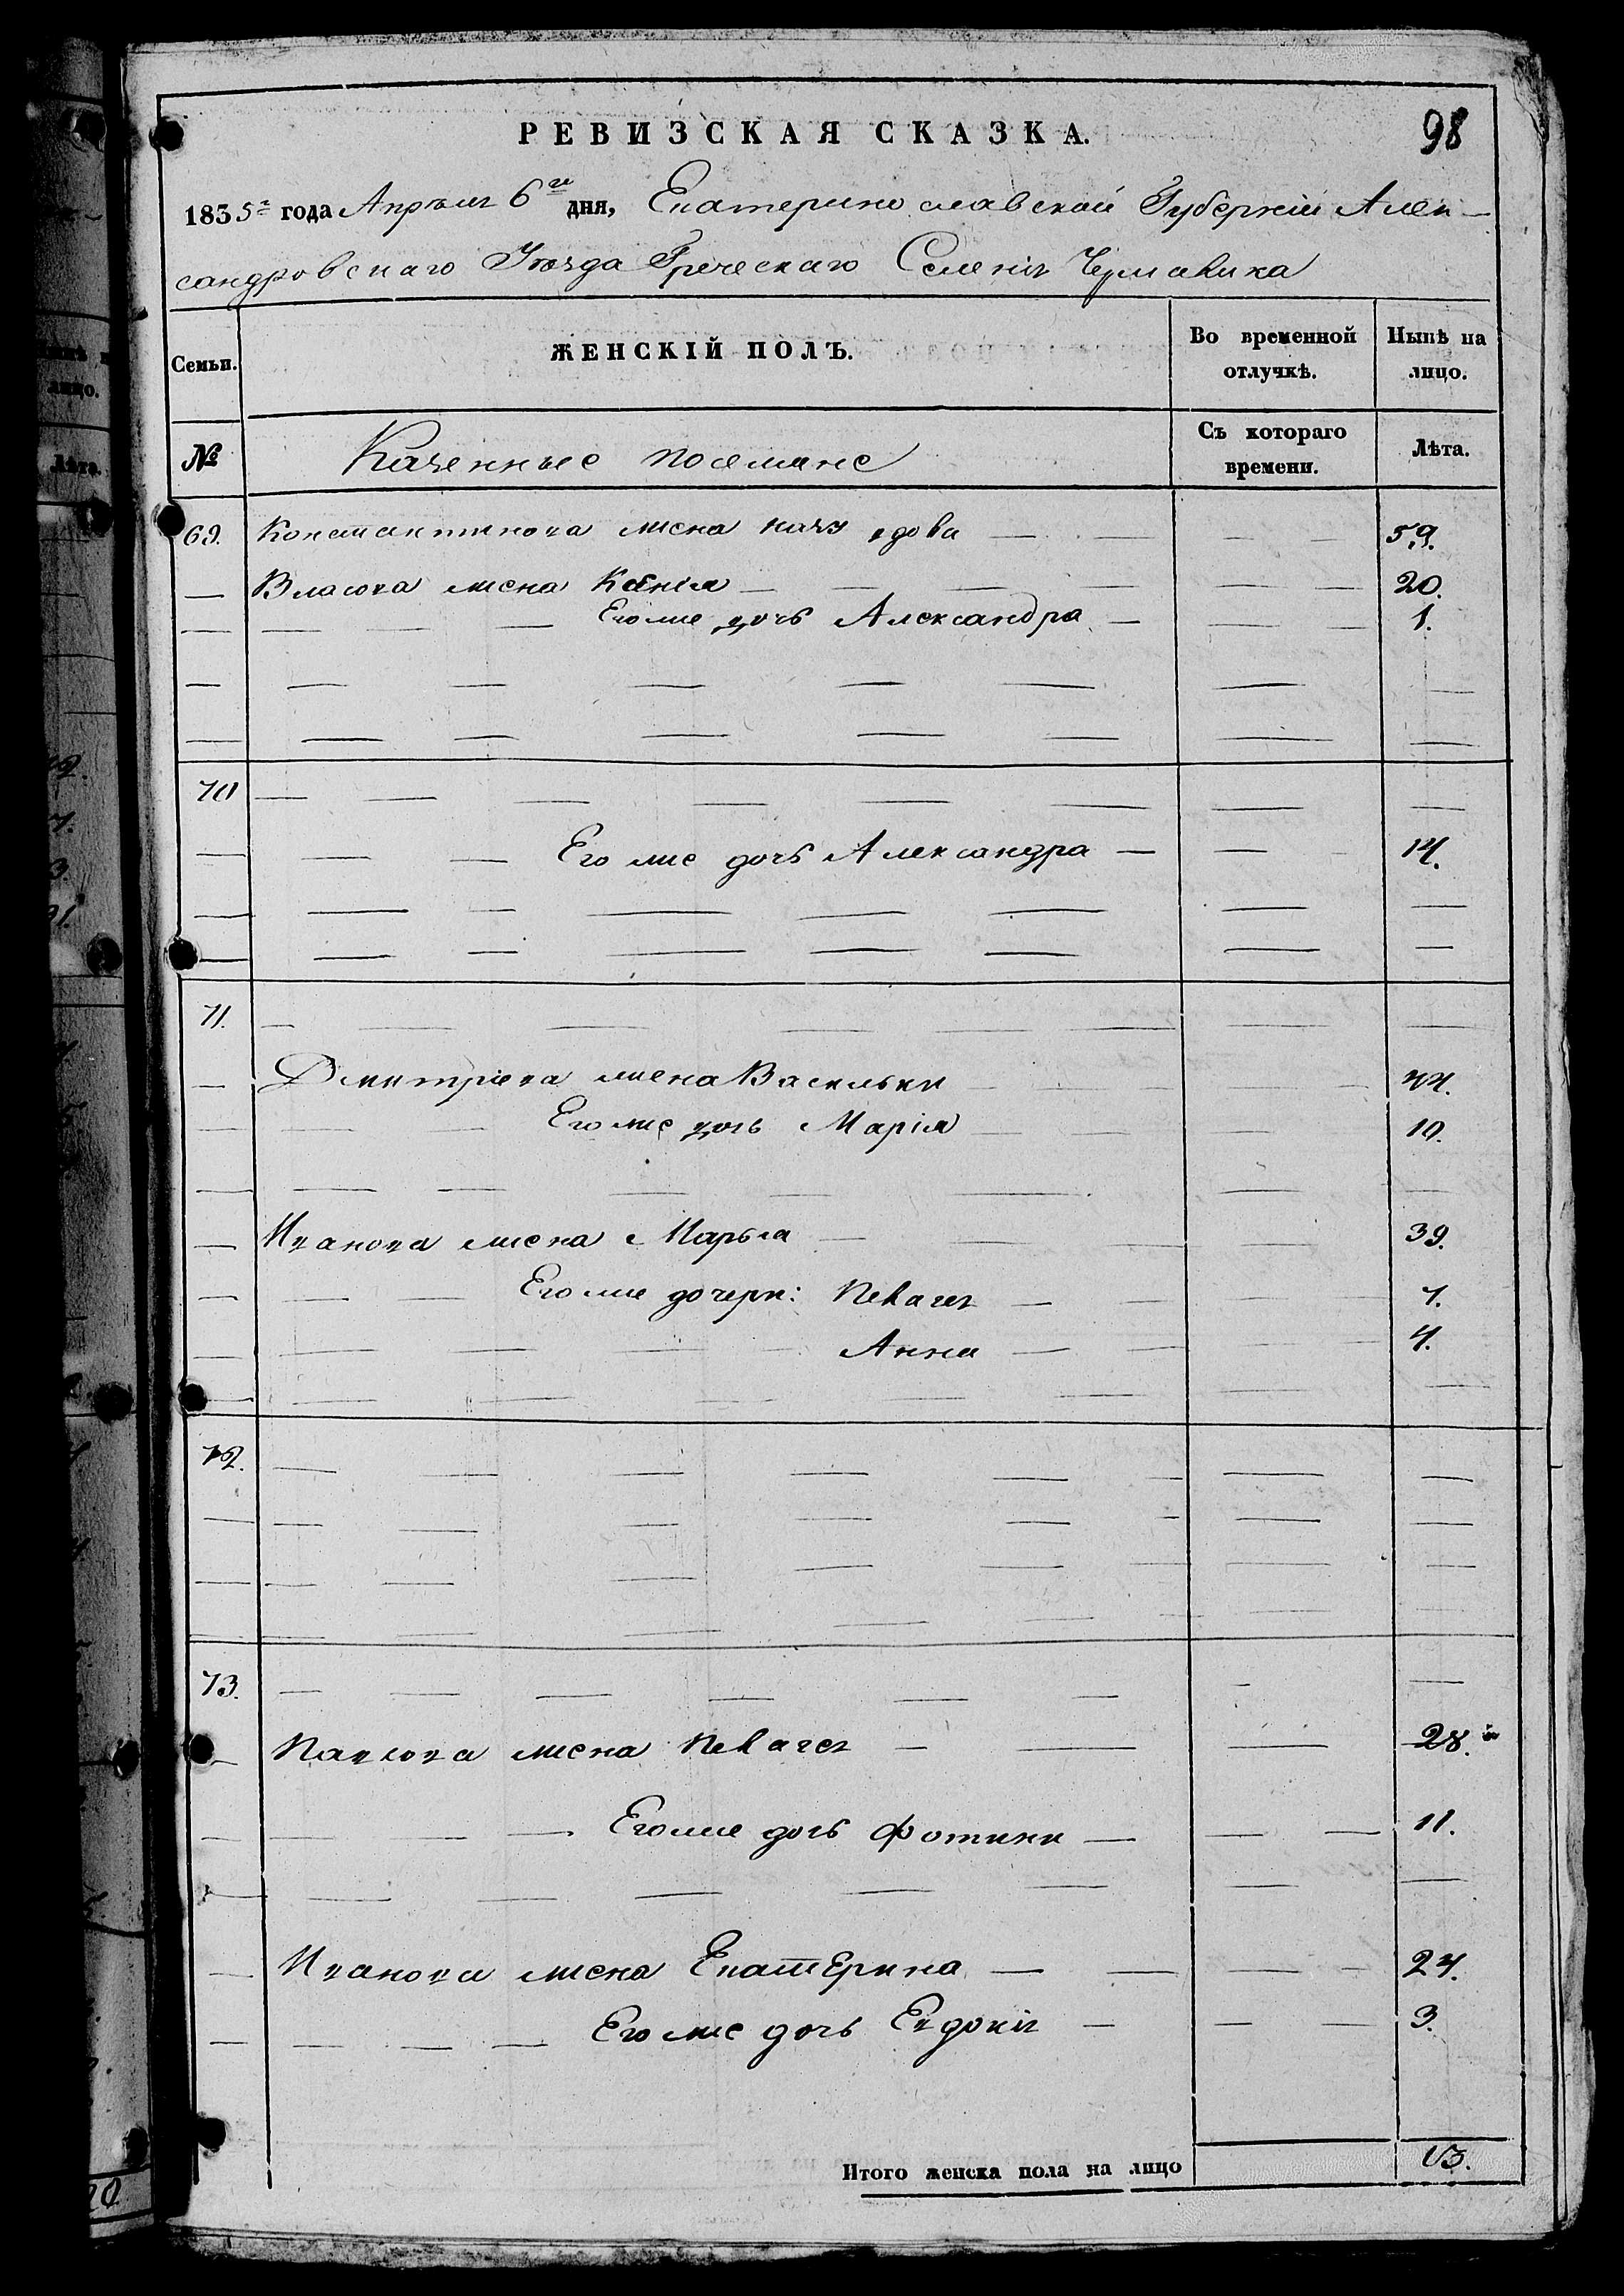 98
РЕВИЗСКАЯ СКАЗКА.
1835го года Апрѣля 6го дня, Екатеринославской Губерніи Алек-
сандровскаго Уѣзда Греческаго Селенія Чермалика
Семьи.
ЖЕНСКІЙ ПОЛЪ.
Во временной отлучкѣ.
Нынѣ на лицо.
№
Казенные поселяне
Съ котораго времени.
Лѣта.
69. Константинова жена вдова 59.
Власова жена Ксенія 20.
Его же дочь Александра 1.
70
Его же дочь Александра 14.
71.
Дмитріева жена Васильки 44.
Его же дочь Марія 10.
Иванова жена Марья 39.
Его же дочери: Пелагея 7.
Анна 4.
72.
73.
Павлова жена Пелагея 28.
Его же дочь Фотини 11.
Иванова жена Екатерина 24.
Его же дочь Евдокія 3.
Итого женска пола на лицо 13.